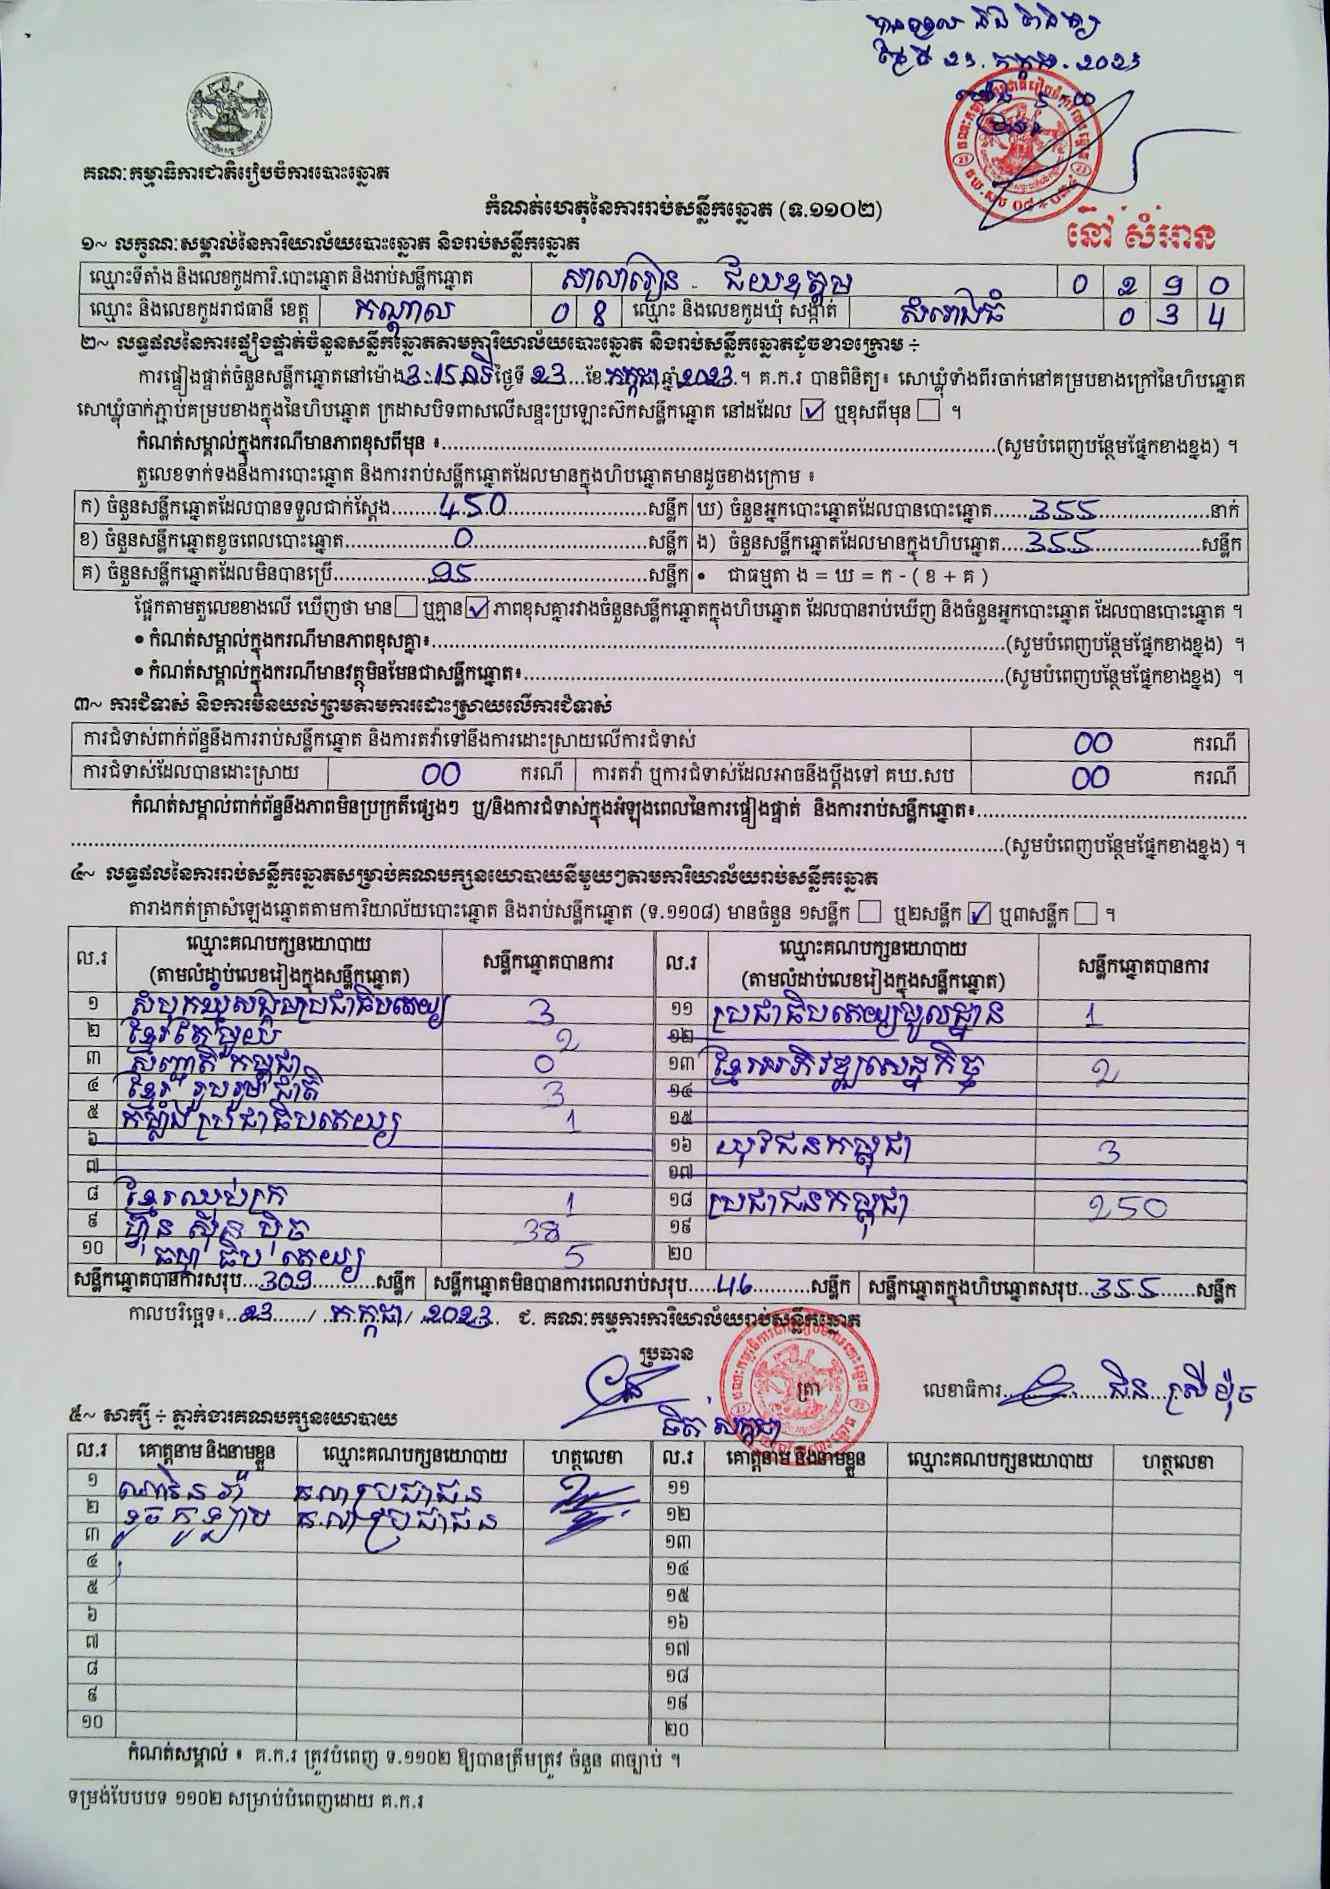 ថ្ងៃទី 23. កក្កដា. 2023
គណៈកម្មាធិការជាតិរៀបចំការបោះឆ្នោត
កំណត់ហេតុនៃការរាប់សន្លឹកឆ្នោត (ទ.១១០២)
នៅ សំអាន
១~ លក្ខណៈសម្គាល់នៃការិយាល័យបោះឆ្នោត និងរាប់សន្លឹកឆ្នោត
ឈ្មោះទីតាំង និងលេខកូដការិ.បោះឆ្នោត និងរាប់សន្លឹកឆ្នោត សាលារៀន ជ័យឧត្តម 0 2 9 0
ឈ្មោះ និងលេខកូដរាជធានី ខេត្ត កណ្តាល 0 8 ឈ្មោះ និងលេខកូដឃុំ សង្កាត់ សំរោងធំ 0 3 4
២~ លទ្ធផលនៃការផ្ទៀងផ្ទាត់ចំនួនសន្លឹកឆ្នោតតាមការិយាល័យបោះឆ្នោត និងរាប់សន្លឹកឆ្នោតដូចខាងក្រោម ÷
ការផ្ទៀងផ្ទាត់ចំនួនសន្លឹកឆ្នោតនៅម៉ោង 3:15 នាទី ថ្ងៃទី 23 ...ខែ. កក្កដា ឆ្នាំ 2023 .។ គ.ក.រ បានពិនិត្យ៖ សោឃ្លុំទាំងពីរចាក់នៅគម្របខាងក្រៅនៃហិបឆ្នោត
សោឃ្លុំចាក់ភ្ជាប់គម្របខាងក្នុងនៃហិបឆ្នោត ក្រដាសបិទពាសលើសន្ទះប្រឡោះស៊កសន្លឹកឆ្នោត នៅដដែល ☑ ឬខុសពីមុន ☐ ។
កំណត់សម្គាល់ក្នុងករណីមានភាពខុសពីមុន ៖..........(សូមបំពេញបន្ថែមផ្នែកខាងខ្នង) ។
តួលេខទាក់ទងនឹងការបោះឆ្នោត និងការរាប់សន្លឹកឆ្នោតដែលមានក្នុងហិបឆ្នោតមានដូចខាងក្រោម ៖
ក) ចំនួនសន្លឹកឆ្នោតដែលបានទទួលជាក់ស្តែង........450..........សន្លឹក ឃ) ចំនួនអ្នកបោះឆ្នោតដែលបានបោះឆ្នោត......355..........នាក់
ខ) ចំនួនសន្លឹកឆ្នោតខូចពេលបោះឆ្នោត..........0..........សន្លឹក ង) ចំនួនសន្លឹកឆ្នោតដែលមានក្នុងហិបឆ្នោត....355..........សន្លឹក
គ) ចំនួនសន្លឹកឆ្នោតដែលមិនបានប្រើ..........95..........សន្លឹក • ជាធម្មតា ង = ឃ = ក - ( ខ + គ )
ផ្អែកតាមតួលេខខាងលើ ឃើញថា មាន ☐ ឬគ្មាន ☑ ភាពខុសគ្នារវាងចំនួនសន្លឹកឆ្នោតក្នុងហិបឆ្នោត ដែលបានរាប់ឃើញ និងចំនួនអ្នកបោះឆ្នោត ដែលបានបោះឆ្នោត ។
• កំណត់សម្គាល់ក្នុងករណីមានភាពខុសគ្នា៖..........(សូមបំពេញបន្ថែមផ្នែកខាងខ្នង) ។
• កំណត់សម្គាល់ក្នុងករណីមានវត្ថុមិនមែនជាសន្លឹកឆ្នោត៖..........(សូមបំពេញបន្ថែមផ្នែកខាងខ្នង) ។
៣~ ការជំទាស់ និងការមិនយល់ព្រមតាមការដោះស្រាយលើការជំទាស់
ការជំទាស់ពាក់ព័ន្ធនឹងការរាប់សន្លឹកឆ្នោត និងការតវ៉ាទៅនឹងការដោះស្រាយលើការជំទាស់ 00 ករណី
ការជំទាស់ដែលបានដោះស្រាយ 00 ករណី ការតវ៉ា ឬការជំទាស់ដែលអាចនឹងប្តឹងទៅ គឃ.សប 00 ករណី
កំណត់សម្គាល់ពាក់ព័ន្ធនឹងភាពមិនប្រក្រតីផ្សេងៗ ឬ/និងការជំទាស់ក្នុងអំឡុងពេលនៃការផ្ទៀងផ្ទាត់ និងការរាប់សន្លឹកឆ្នោត៖..........
..........(សូមបំពេញបន្ថែមផ្នែកខាងខ្នង) ។
៤~ លទ្ធផលនៃការរាប់សន្លឹកឆ្នោតសម្រាប់គណបក្សនយោបាយនីមួយៗតាមការិយាល័យរាប់សន្លឹកឆ្នោត
តារាងកត់ត្រាសំឡេងឆ្នោតតាមការិយាល័យបោះឆ្នោត និងរាប់សន្លឹកឆ្នោត (ទ.១១០៨) មានចំនួន ១សន្លឹក ☐ ឬ២សន្លឹក ☑ ឬ៣សន្លឹក ☐ ។
ល.រ ឈ្មោះគណបក្សនយោបាយ (តាមលំដាប់លេខរៀងក្នុងសន្លឹកឆ្នោត) សន្លឹកឆ្នោតបានការ ល.រ ឈ្មោះគណបក្សនយោបាយ (តាមលំដាប់លេខរៀងក្នុងសន្លឹកឆ្នោត) សន្លឹកឆ្នោតបានការ
១ សំបុកឃ្មុំសង្គមប្រជាធិបតេយ្យ 3 ១១ ប្រជាធិបតេយ្យមូលដ្ឋាន 1
២ ខ្មែរតែមួយ 2 ១២
៣ សញ្ជាតិកម្ពុជា 0 ១៣ ខ្មែរអភិវឌ្ឍសេដ្ឋកិច្ច 2
៤ ខ្មែររួបរួមជាតិ 3 ១៤
៥ កម្លាំងប្រជាធិបតេយ្យ 1 ១៥
៦ ១៦ យុវជនកម្ពុជា 3
៧ ១៧
៨ ខ្មែរឈប់ក្រ 1 ១៨ ប្រជាជនកម្ពុជា 250
៩ ហ៊្វុនស៊ិនប៉ិច 38 ១៩
១០ ធម្មាធិបតេយ្យ 5 ២០
សន្លឹកឆ្នោតបានការសរុប...309..........សន្លឹក សន្លឹកឆ្នោតមិនបានការពេលរាប់សរុប.....46..........សន្លឹក សន្លឹកឆ្នោតក្នុងហិបឆ្នោតសរុប..355......សន្លឹក
កាលបរិច្ឆេទ៖..23....../ .កក្កដា/ .2023. ជ. គណៈកម្មការការិយាល័យរាប់សន្លឹកឆ្នោត
ប្រធាន
ត្រា
លេខាធិការ.......... ជិន ស្រីម៉ុច
៥~ សាក្សី ÷ ភ្នាក់ងារគណបក្សនយោបាយ
ល.រ គោត្តនាម និងនាមខ្លួន ឈ្មោះគណបក្សនយោបាយ ហត្ថលេខា ល.រ គោត្តនាម និងនាមខ្លួន ឈ្មោះគណបក្សនយោបាយ ហត្ថលេខា
១ គណប្រជាជន ១១
២ គណប្រជាជន ១២
៣ ១៣
៤ ១៤
៥ ១៥
៦ ១៦
៧ ១៧
៨ ១៨
៩ ១៩
១០ ២០
កំណត់សម្គាល់ ៖ គ.ក.រ ត្រូវបំពេញ ទ.១១០២ ឱ្យបានត្រឹមត្រូវ ចំនួន ៣ច្បាប់ ។
ទម្រង់បែបបទ ១១០២ សម្រាប់បំពេញដោយ គ.ក.រ